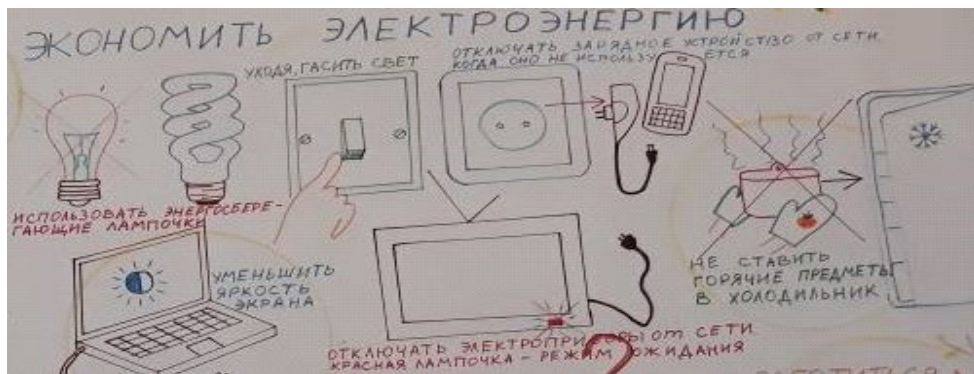 ЭКОНОМИТЬ ЭЛЕКТРОЭНЕРГИЮ
УХОДЯ, ГАСИТЬ СВЕТ
ОТКЛЮЧАТЬ ЗАРЯДНОЕ УСТРОЙСТВО ОТ СЕТИ
КОГДА ОНО НЕ ИСПОЛЬЗУЕТСЯ
ИСПОЛЬЗОВАТЬ ЭНЕРГОСБЕРЕ-
ГАЮЩИЕ ЛАМПОЧКИ
УМЕНЬШИТЬ
ЯРКОСТЬ
ЭКРАНА
НЕ СТАВИТЬ
ГОРЯЧИЕ ПРЕДМЕТЫ
В ХОЛОДИЛЬНИК
ОТКЛЮЧАТЬ ЭЛЕКТРОПРИБОРЫ ОТ СЕТИ
КРАСНАЯ ЛАМПОЧКА - РЕЖИМ ОЖИДАНИЯ